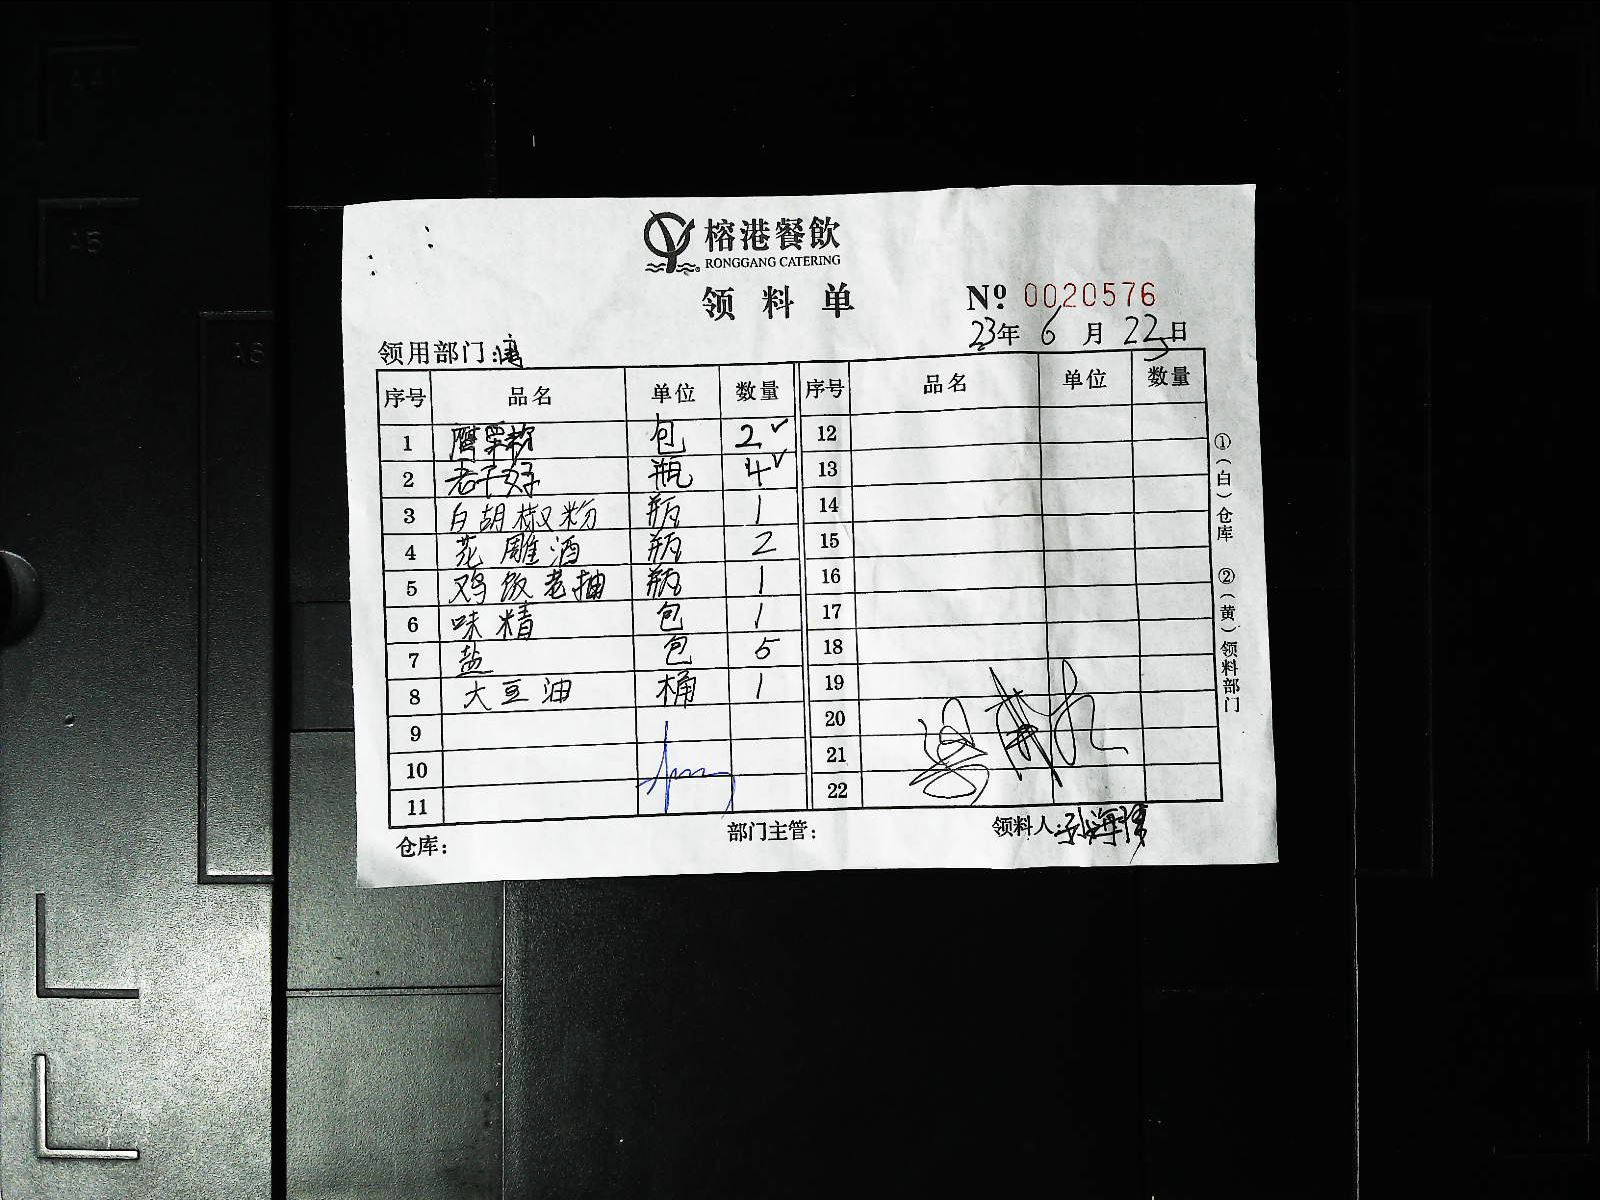 榕港餐飲
RONGGANG CATERING
领料单
№ 0020576
23年 6月 22日
领用部门:
序号 品名 单位 数量 序号 品名 单位 数量
1 鹰粟粉 包 2 ✓ 12
2 老干妈 瓶 4 ✓ 13
3 白胡椒粉 瓶 1 14
4 花雕酒 瓶 2 15
5 鸡饭老抽 瓶 1 16
6 味精 包 1 17
7 盐 包 5 18
8 大豆油 桶 1 19
9 20
10 21
11 22
仓库: 部门主管: 领料人:
①(白)仓库 ②(黄)领料部门
A4
A5
A6